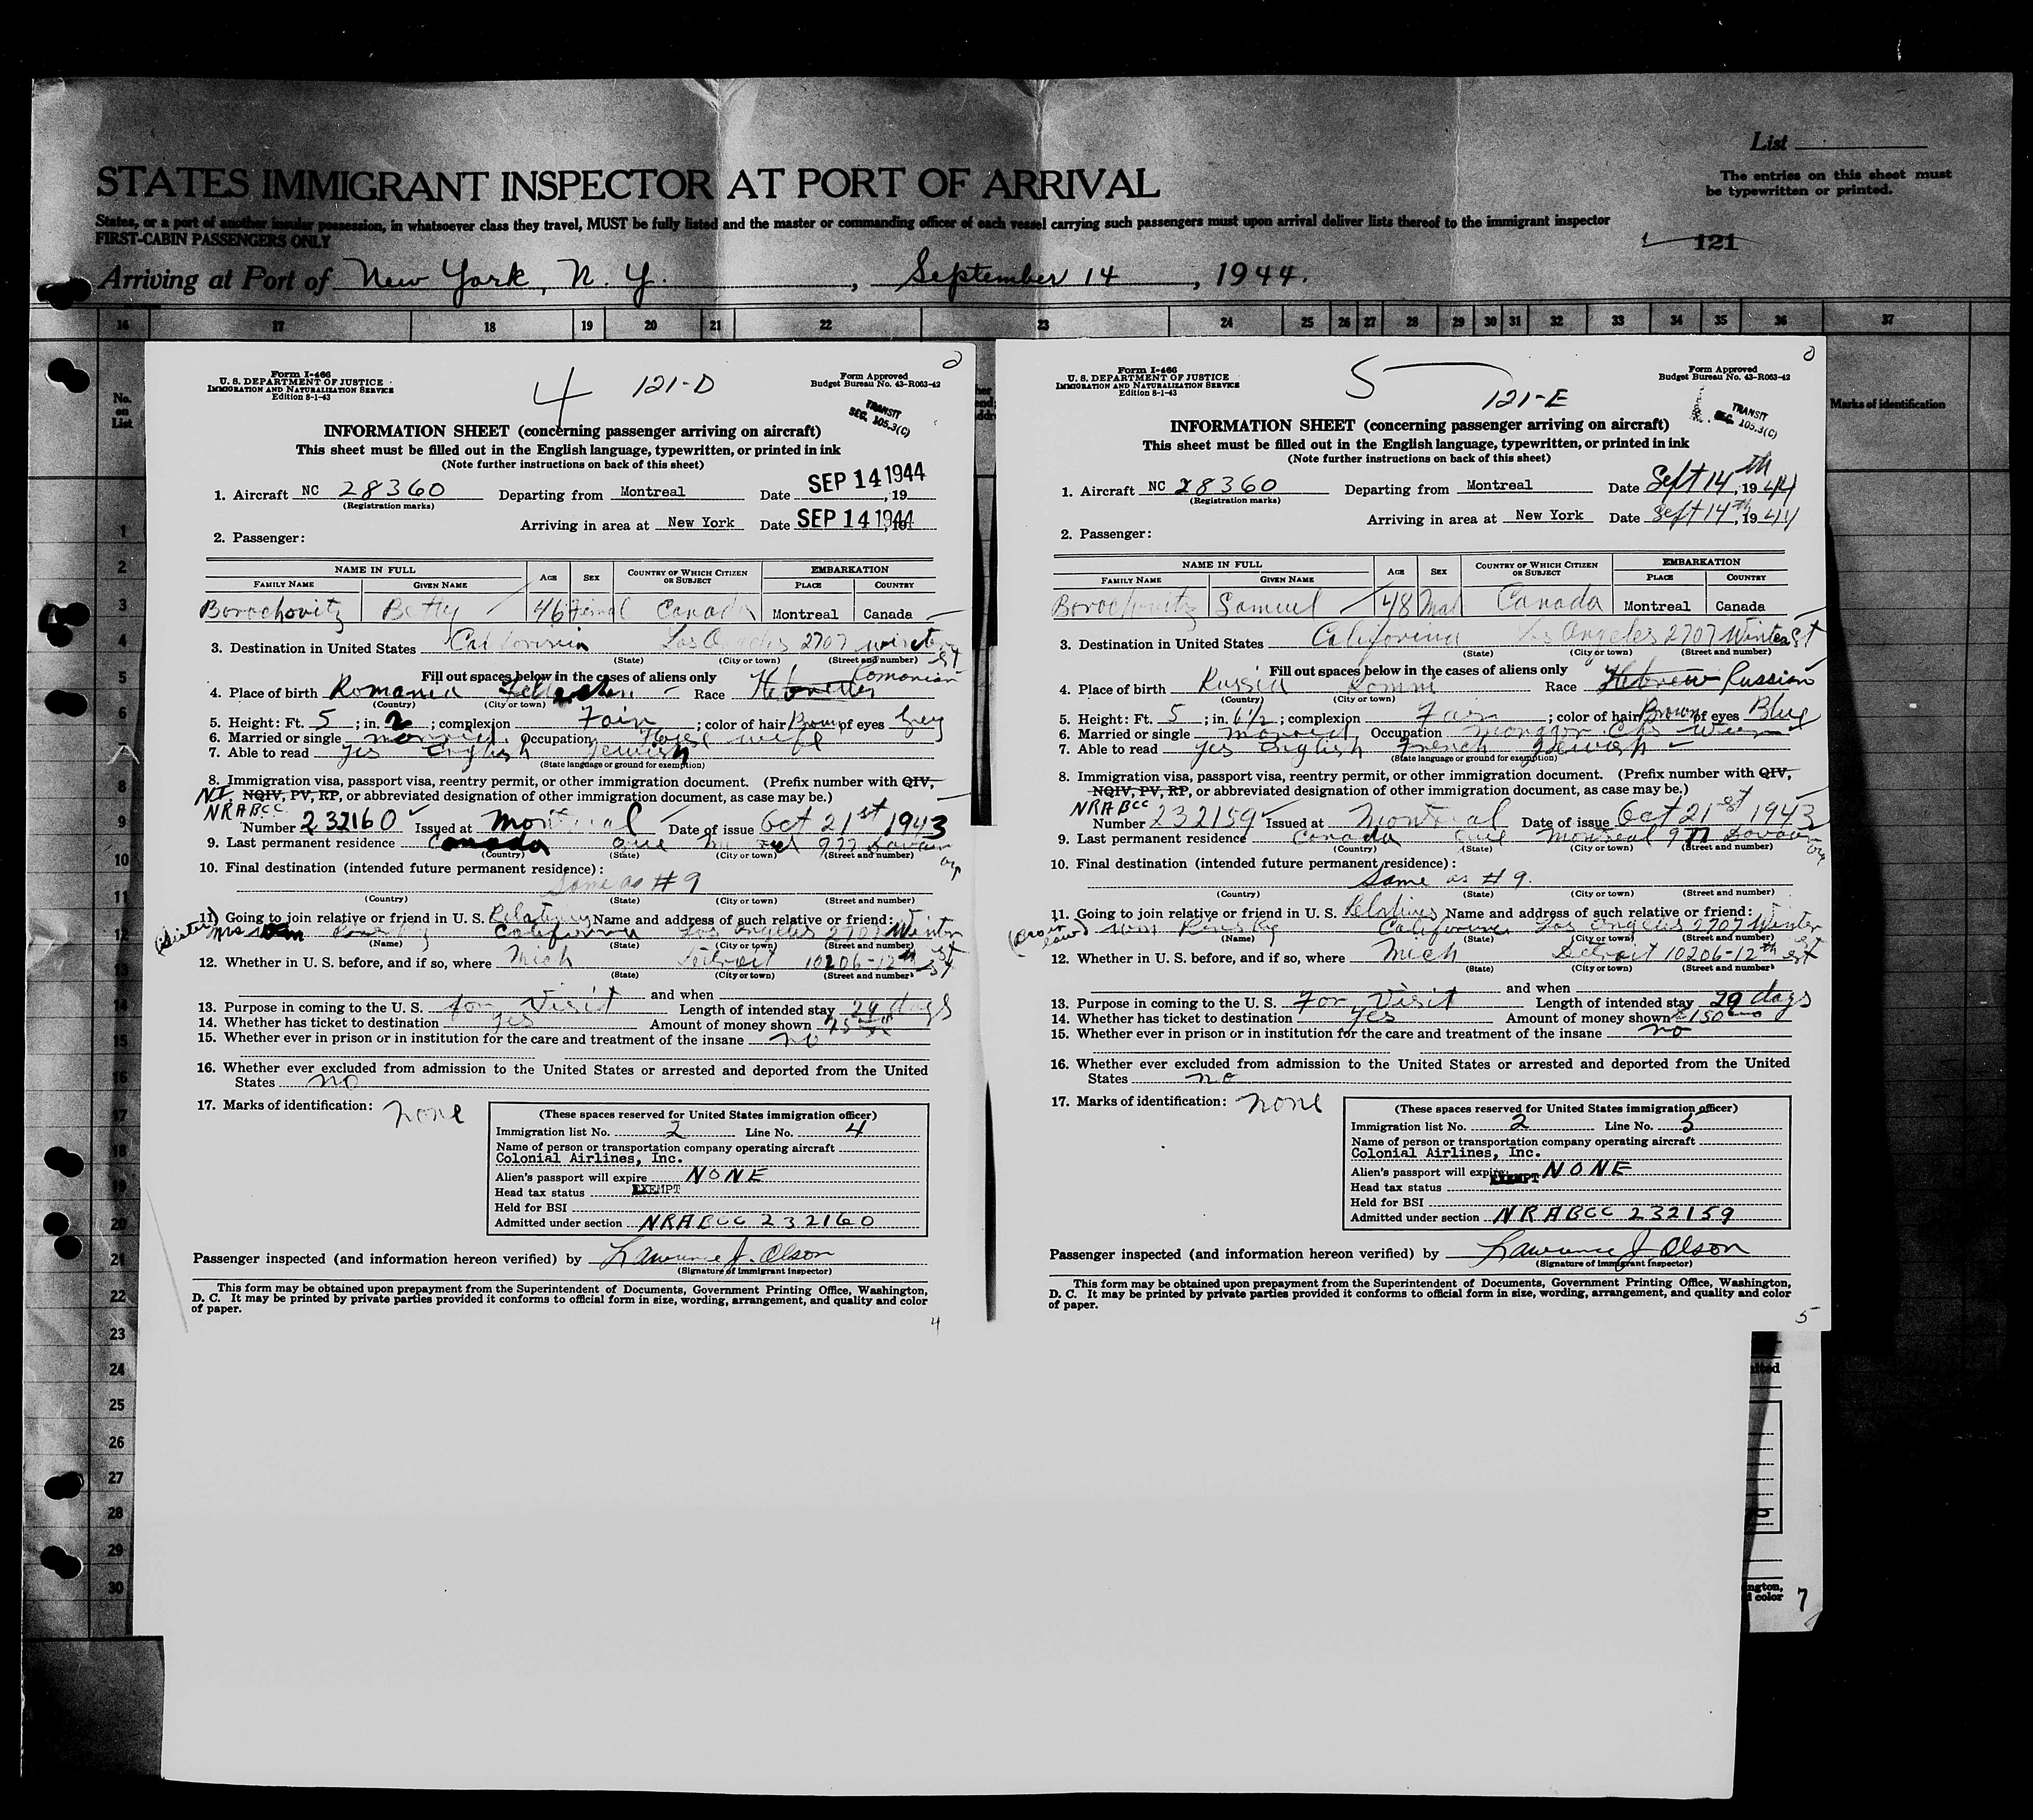 List
The entries on this sheet must
be typewritten or printed.
STATES IMMIGRANT INSPECTOR AT PORT OF ARRIVAL
States, or a port of another insular possession, in whatsoever class they travel, MUST be fully listed and the master or commanding officer of each vessel carrying such passengers must upon arrival deliver lists thereof to the immigrant inspector
FIRST-CABIN PASSENGERS ONLY
121
Arriving at Port of New York, N. Y., September 14, 1944.
16 17 18 19 20 21 22 23 24 25 26 27 28 29 30 31 32 33 34 35 36 37
No. on List
Marks of identification
1
2
3
4
5
6
7
8
9
10
11
12
13
14
15
16
17
18
19
20
21
22
23
24
25
26
27
28
29
30
Form I-466
U. S. DEPARTMENT OF JUSTICE
IMMIGRATION AND NATURALIZATION SERVICE
Edition 8-1-43
4 121-D
Form Approved
Budget Bureau No. 43-R063-42
TRANSIT
SEC. 105.3(C)
INFORMATION SHEET (concerning passenger arriving on aircraft)
This sheet must be filled out in the English language, typewritten, or printed in ink
(Note further instructions on back of this sheet)
1. Aircraft NC 28360 Departing from Montreal Date SEP 14 1944, 19
(Registration marks)
Arriving in area at New York Date SEP 14 1944
2. Passenger:
NAME IN FULL AGE SEX COUNTRY OF WHICH CITIZEN OR SUBJECT EMBARKATION
FAMILY NAME GIVEN NAME PLACE COUNTRY
Borochovitz Betty 46 Femal Canada Montreal Canada
3. Destination in United States California Los Angeles 2707 Winter st
(State) (City or town) (Street and number)
Fill out spaces below in the cases of aliens only
4. Place of birth Romania Race Romanian
(Country) (City or town)
5. Height: Ft. 5; in. 2; complexion Fair; color of hair Brown of eyes Grey
6. Married or single married. Occupation House wife
7. Able to read yes English Jewish
(State language or ground for exemption)
8. Immigration visa, passport visa, reentry permit, or other immigration document. (Prefix number with QIV,
NQIV, PV, RP, or abbreviated designation of other immigration document, as case may be.)
NRABCC
Number 232160 Issued at Montreal Date of issue Oct 21st 1943
9. Last permanent residence Canada Que Montreal 977
(Country) (State) (City or town) (Street and number)
10. Final destination (intended future permanent residence):
Same as # 9
(Country) (State) (City or town) (Street and number)
11. Going to join relative or friend in U. S. Relatives Name and address of such relative or friend:
(sister) Mrs California Los Angeles 2707 Winter st
(Name) (State) (City or town) (Street and number)
12. Whether in U. S. before, and if so, where Mich Detroit 10206-12th st
(State) (City or town) (Street and number)
and when
13. Purpose in coming to the U. S. for Visit Length of intended stay 29 days
14. Whether has ticket to destination yes Amount of money shown
15. Whether ever in prison or in institution for the care and treatment of the insane no
16. Whether ever excluded from admission to the United States or arrested and deported from the United
States no
17. Marks of identification: none
(These spaces reserved for United States immigration officer)
Immigration list No. 2 Line No. 4
Name of person or transportation company operating aircraft
Colonial Airlines, Inc.
Alien's passport will expire NONE
Head tax status EXEMPT
Held for BSI
Admitted under section NRABCC 232160
Passenger inspected (and information hereon verified) by Lawrence J. Olson
(Signature of immigrant inspector)
This form may be obtained upon prepayment from the Superintendent of Documents, Government Printing Office, Washington,
D. C. It may be printed by private parties provided it conforms to official form in size, wording, arrangement, and quality and color
of paper.
4
Form I-466
U. S. DEPARTMENT OF JUSTICE
IMMIGRATION AND NATURALIZATION SERVICE
Edition 8-1-43
5 121-E
Form Approved
Budget Bureau No. 43-R063-42
TRANSIT
SEC. 105.3(C)
INFORMATION SHEET (concerning passenger arriving on aircraft)
This sheet must be filled out in the English language, typewritten, or printed in ink
(Note further instructions on back of this sheet)
1. Aircraft NC 28360 Departing from Montreal Date Sept 14th, 1944
(Registration marks)
Arriving in area at New York Date Sept 14th, 1944
2. Passenger:
NAME IN FULL AGE SEX COUNTRY OF WHICH CITIZEN OR SUBJECT EMBARKATION
FAMILY NAME GIVEN NAME PLACE COUNTRY
Borochovitz Samuel 48 Mal Canada Montreal Canada
3. Destination in United States California Los Angeles 2707 Winter St
(State) (City or town) (Street and number)
Fill out spaces below in the cases of aliens only
4. Place of birth Russia Romni Race Hebrew Russian
(Country) (City or town)
5. Height: Ft. 5; in. 6 1/2; complexion Fair; color of hair Brown of eyes Blue
6. Married or single married Occupation
7. Able to read yes English French Jewish
(State language or ground for exemption)
8. Immigration visa, passport visa, reentry permit, or other immigration document. (Prefix number with QIV,
NQIV, PV, RP, or abbreviated designation of other immigration document, as case may be.)
NRABCC
Number 232159 Issued at Montreal Date of issue Oct 21st 1943
9. Last permanent residence Canada Que Montreal 977
(Country) (State) (City or town) (Street and number)
10. Final destination (intended future permanent residence):
Same as # 9.
(Country) (State) (City or town) (Street and number)
11. Going to join relative or friend in U. S. Relatives Name and address of such relative or friend:
Rinsky California Los Angeles 2707 Winter st
(Name) (State) (City or town) (Street and number)
12. Whether in U. S. before, and if so, where Mich Detroit 10206-12th st
(State) (City or town) (Street and number)
and when
13. Purpose in coming to the U. S. For Visit Length of intended stay 29 days
14. Whether has ticket to destination Yes Amount of money shown $150
15. Whether ever in prison or in institution for the care and treatment of the insane no
16. Whether ever excluded from admission to the United States or arrested and deported from the United
States no
17. Marks of identification: none
(These spaces reserved for United States immigration officer)
Immigration list No. 2 Line No. 5
Name of person or transportation company operating aircraft
Colonial Airlines, Inc.
Alien's passport will expire NONE
EXEMPT
Head tax status
Held for BSI
Admitted under section NRABCC 232159
Passenger inspected (and information hereon verified) by Lawrence J Olson
(Signature of immigrant inspector)
This form may be obtained upon prepayment from the Superintendent of Documents, Government Printing Office, Washington,
D. C. It may be printed by private parties provided it conforms to official form in size, wording, arrangement, and quality and color
of paper.
5
ngton,
d color
7